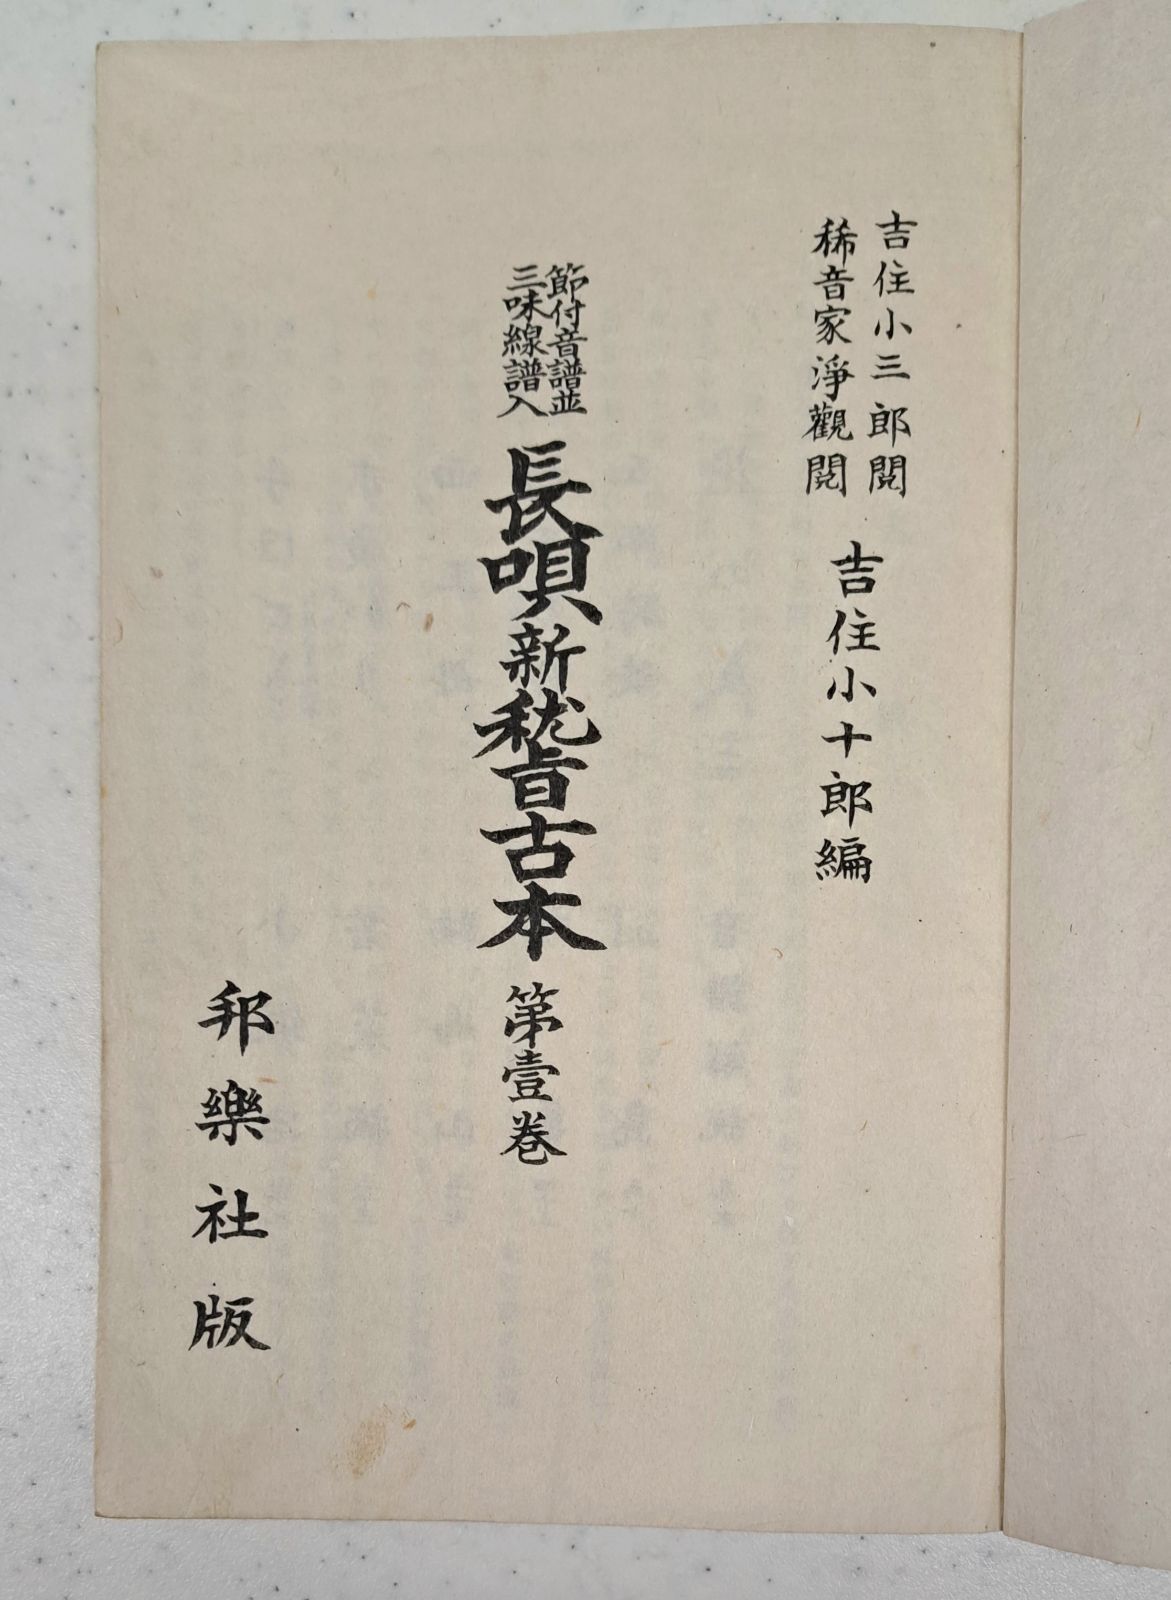 吉住小三郎閲
稀音家淨觀閲
吉住小十郎編
節付音譜並
三味線譜入
長唄新稽古本 第壹巻
邦樂社版